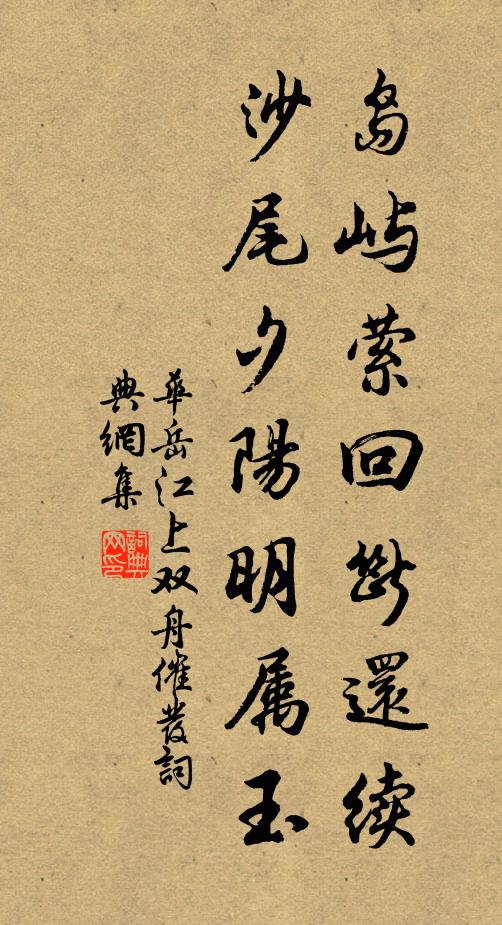 島嶼萦回斷還續
沙尾夕陽明属玉
華岳江上双舟催發詞
典網集
詞典
网印